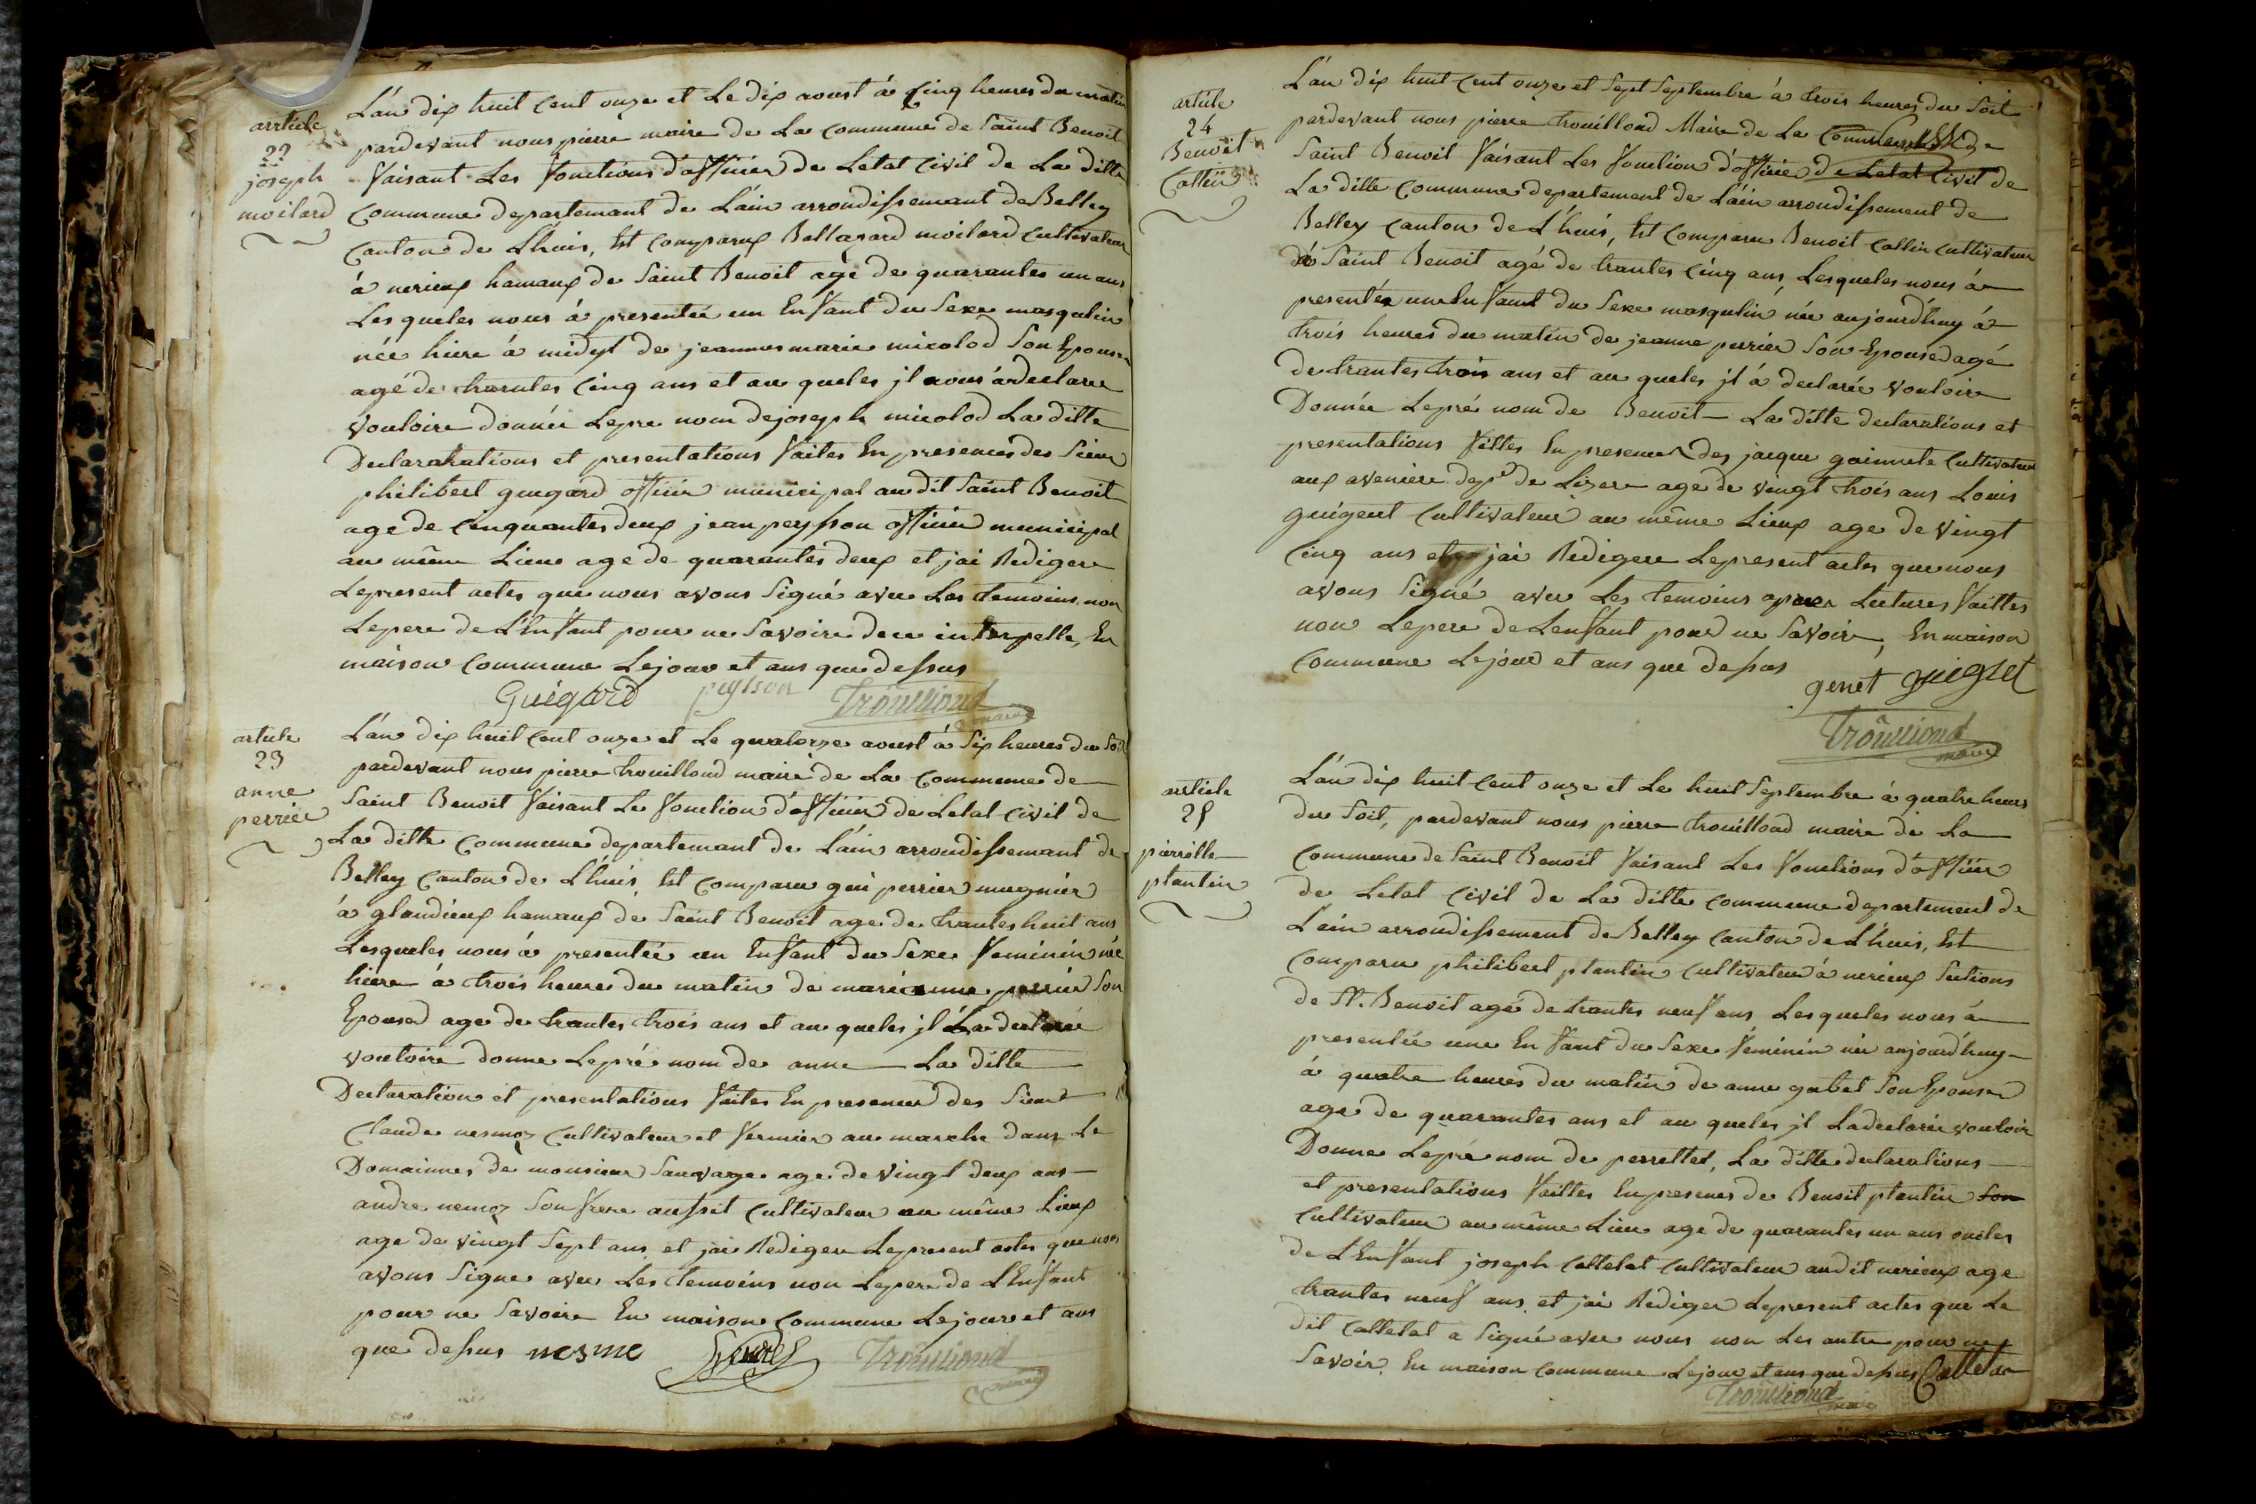 article
22
joseph
moilard
L'an dix huit cent onze et Le dix aoust à cinq heures du matin
pardevant nous pierre maire de La commune de Saint Benoit
faisant Les fonctions d'officier de Letat Civil de La ditte
Commune departemant de L'ain arrondissemant de Belley
Canton de L'huis, Est comparux Baltazard moilard cultivateur
à nerieux hamaux de Saint Benoit agé de quarantes un ans
Lesqueles nous à presentée un Enfant du Sexe masqulin
née hiere à midyt de jeannes marie micolod Son Epouse
agé de trantes Cinq ans et au queles jl nous à declaree
vouloire donnée Lepre nom de joseph micolod La ditte
Declarahrations et presentations faites En presences des Sieur
philibert guegard officier municipal au dit Saint Benoit
age de cinquantes deux jean peysson officier municipal
au même Lieux age de quarantes deux et jai Redigere
Lepresent actes que nous avons Signé avec Les temoins, non
Lepere de L'Enfant pour ne Savoire de ce interpelle, En
maison Commune Lejour et ans que dessus
Guégard peysson Trouilloud
maire
article
23
anne
perrier
L'an dix huit Cent onze et Le quatorze aoust à Six heures du Soit
pardevant nous pierre trouilloud maire de La Commune de
Saint Benoit faisant Le fonction d'officier de Letat Civil de
La ditte Commune departemant de L'ain arrondissemant de
Belley Canton de L'huis, Est comparu gui perrier mugnier
à glandieux hamaux de Saint Benoit age de trantes huit ans
Lesqueles nous à presentée un Enfant du Sexe feminin née
hiere à trois heure du matin de marianne perrier Son
Epouse age de trantes trois ans et au queles jl La declaré
vouloire donne Lepré nom de anne La ditte
Declaration et presentations faites En presence des Sieur
Claude nesmoz Cultivateur et fermier au marche dans Le
Domainnes de monsieur Sauvage age de vingt deux ans
andre nemoz Son frere aussit Cultivateur au même Lieux
age de vingt Sept ans et jai Redigere Lepresent actes que nous
avons Signe avec Les temoins non Lepere de L'Enfant
pour ne Savoire En maison Commune Lejour et ans
que dessus nesme Trouilloud
maire
article
24
Benoit
Cattin
L'an dix huit Cent onze et Sept Septembre à trois heures du Soit
pardevant nous pierre trouilloud Maire de La Commune de
Saint Benoit faisant Les fonction d'officier de Letat Civil de
La ditte Commune departement de L'ain arrondissement de
Belley Canton de L'huis, Est comparu Benoit Cattin Cultivateur
à Saint Benoit agé de trantes Cinq ans, Lesqueles nous à
presentée une Enfant du Sexe masqulin née aujourdhuy à
trois heures du matin de jeanne perrier Son Epouse agé
de trantes trois ans et au queles jl à declarée vouloire
Donnée Lepré nom de Benoit La ditte declarations et
presentations fittes En presence des jacque gainnete Cultivateur
aux aveniere depd de Lizere age de vingt trois ans Louis
guigeut Cultivateur au même Lieux age de vingt
Cinq ans et jai Redigere Lepresent actes que nous
avons Signé avec Les temoins apres Lectures faittes
non Lepere de Lenfant pour ne Savoir, En maison
Commune Lejour et ans que dessus
genet guiglet
Trouilloud
maire
article
25
pierrette
plantin
L'an dix huit Cent onze et Le huit Septembre à quatre heurs
du Soit, pardevant nous pierre trouilloud maire de La
Commune de Saint Benoit faisant Les fonctions d'officier
de Letat Civil de La ditte Commune departement de
L'ain arrondissement de Belley Canton de L'huis, Est
Comparu philibert plantin Cultivateur à nerieux Sections
de St. Benoit agé de trantes neuf ans Lesqueles nous à
presentée une Enfant du Sexe féminin née aujourdhuy
à quatre heures du matin de anne gabet Son Epouse
age de quarantes ans et au queles jl La declarée vouloir
Donne Lepré nom de perrettes, La ditte declarations
et presentations faittes En presences de Benoit plantin Son
Cultivateur au même Lieu age de quarantes un ans oncles
de L'Enfant joseph Cattelat Cultivateur audit nerieux age
trantes neuf ans, et jai Rediger Lepresent actes que Le
dit Cattelat a Signé avec nous non Les autre pour ne
Savoir. En maison Commune Lejour et ans que dessus Cattelat
Trouilloud
maire